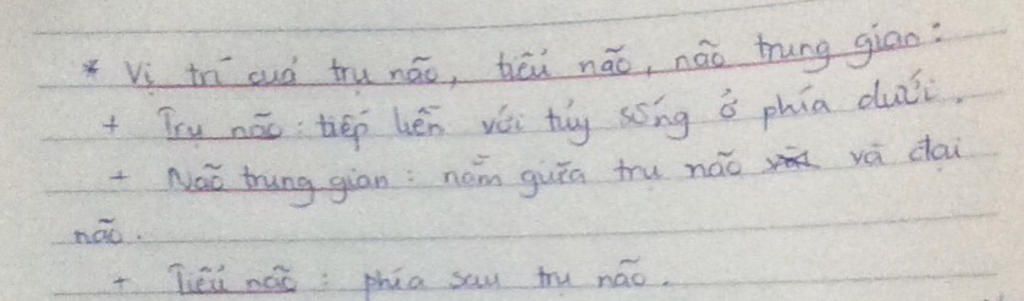 * Vị trí cuả trụ não, tiểu não, não trung gian:
+ Trụ não: tiếp liền với tủy sống ở phía dưới.
+ Não trung gian: nằm giữa trụ não và đại
não.
+ Tiểu não: phía sau trụ não.